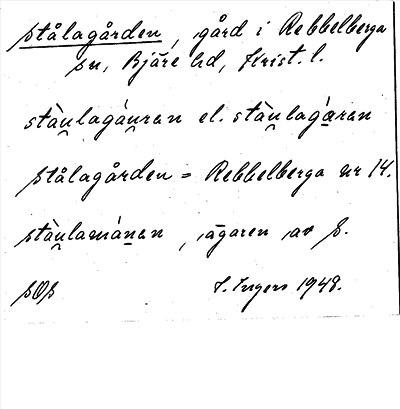 stålagården, gård i Rebbelberga
sn, Bjäre hd, Krist. l.
stàu̯lagáu̯ran el. stàu̯lagáran
stålagården = Rebbelberga nr 14.
stàu̯lamánan, ägaren av s.
sOs I. Ingers 1948.